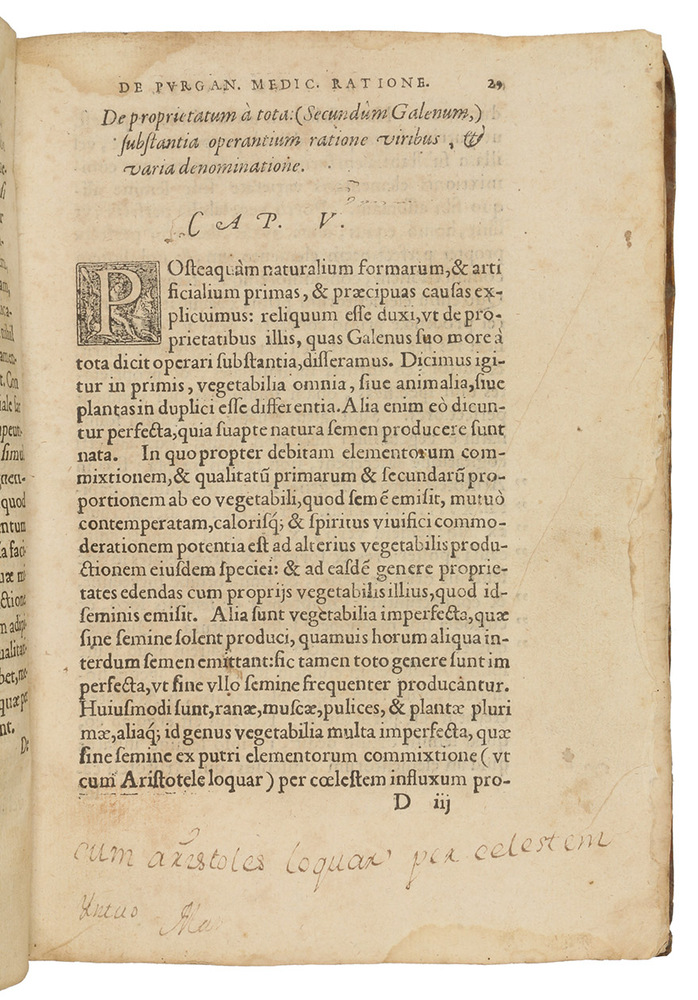 DE PVRGAN. MEDIC. RATIONE. 29
De proprietatum à tota: (Secundùm Galenum,)
substantia operantium ratione viribus, &
varia denominatione.
CAP. V.
POsteaquàm naturalium formarum, & arti
ficialium primas, & præcipuas causas ex-
plicuimus: reliquum esse duxi, vt de pro-
prietatibus illis, quas Galenus suo more à
tota dicit operari substantia, disseramus. Dicimus igi-
tur in primis, vegetabilia omnia, siue animalia, siue
plantas in duplici esse differentia. Alia enim eò dicun-
tur perfecta, quia suapte natura semen producere sunt
nata. In quo propter debitam elementorum com-
mixtionem, & qualitatũ primarum & secundarũ pro-
portionem ab eo vegetabili, quod semẽ emisit, mutuò
contemperatam, calorisq́; & spiritus viuifici commo-
derationem potentia est ad alterius vegetabilis produ-
ctionem eiusdem speciei: & ad easdẽ genere proprie-
tates edendas cum proprijs vegetabilis illius, quod id-
seminis emisit. Alia sunt vegetabilia imperfecta, quæ
sine semine solent produci, quamuis horum aliqua in-
terdum semen emittant: sic tamen toto genere sunt im
perfecta, vt sine vllo semine frequenter producàntur.
Huiusmodi sunt, ranæ, muscæ, pulices, & plantæ pluri
mæ, aliaq́; id genus vegetabilia multa imperfecta, quæ
sine semine ex putri elementorum commixtione ( vt
cum Aristotele loquar ) per cœlestem influxum pro-
D iij
cum aristoles loquar per celestem
ita
si
tur
t. Con
iale sit
simul
quod
entum
a faci
uæ mi
ctione
m adip
ualitat-
bet, me-
quæ per
nt.
De